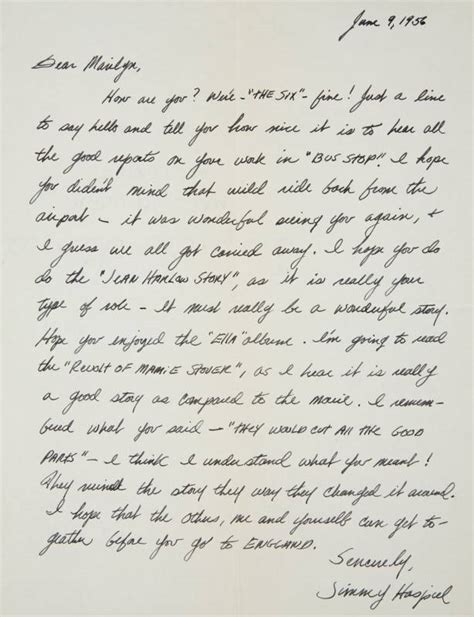 June 9, 1956
Dear Marilyn,
How are you? We're - "THE SIX" - fine! Just a line
to say hello and tell you how nice it is to hear all
the good reports on your work in "BUS STOP". I hope
you dident mind that wild ride back from the
airport - it was wonderful seeing you again, +
I guess we all got carried away. I hope you do
do the "JEAN HARLOW STORY", as it is really your
type of role - It must really be a wonderful story.
Hope you enjoyed the "Ella" album. I'm going to read
the "REVOLT OF MAMIE STOVER", as I hear it is really
a good story as compared to the movie. I remem-
bered what you said - "THEY WOULD CUT ALL THE GOOD
PARTS" - I think I understand what you meant!
They ruined the story they way they changed it around.
I hope that the others, me and yourself can get to-
geather before you go to ENGLAND.
Sencurely,
Jimmy Haspiel